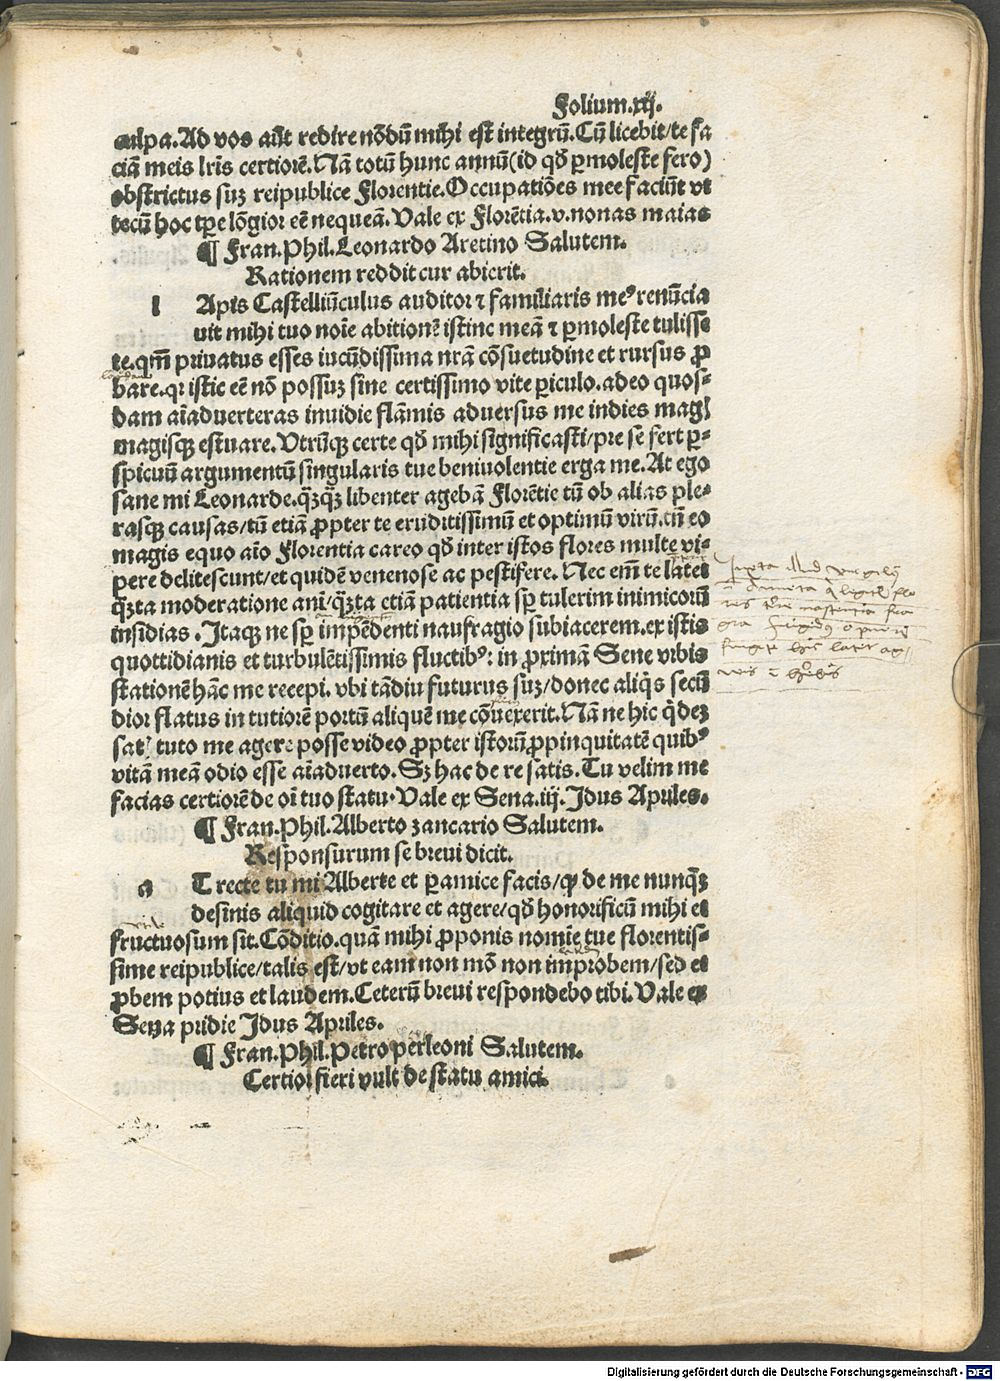 Folium.xij.
culpa.Ad vos aūt redire nōdū mihi est integrū.Cū licebit/te fa
ciā meis lr̄is certiorē.Nā totū hunc annū(id qd̄ ꝑmoleste fero)
obstrictus suꝫ reipublice Florentie.Occupatiōes mee faciūt vt
tecū hoc tꝑe lōgior eē nequeā.Vale ex Florētia.v.nonas maias
¶ Fran.Phil.Leonardo Aretino Salutem.
Rationem reddit cur abierit.
l Apis Castelliūculus auditor ⁊ familiaris meꝰ renūcia
uit mihi tuo noīe abitionē istinc meā ⁊ ꝑmoleste tulisse
te.qm̄ priuatus esses iucūdissima nr̄a cōsuetudine et rursus ꝓ
bare.qꝛ istic eē nō possuꝫ sine certissimo vite ꝑiculo.adeo quos⸗
dam aīaduerteras inuidie flāmis aduersus me indies mag⁊
magisqꝫ estuare.Vtrūqꝫ certe qd̄ mihi significasti/pre se fert ꝑ⸗
spicuū argumentū singularis tue beniuolentie erga me.At ego
sane mi Leonarde.qꝫqꝫ libenter agebā Florētie tū ob alias ple⸗
rasqꝫ causas/tū etiā ꝓpter te eruditissimū et optimū virū.tū eo
magis equo aīo Florentia careo qd̄ inter istos flores multe vi⸗
pere delitescunt/et quidē venenose ac pestifere.Nec em̄ te latet
qꝫta moderatione ani/qꝫta etiā patientia sꝑ tulerim inimicorū
insidias.Itaqꝫ ne sꝑ impēdenti naufragio subiacerem.ex istis
quottidianis et turbulētissimis fluctibꝰ: in ꝓximā Sene vrbis
stationē hāc me recepi.vbi tādiu futurus suꝫ/donec aliqͥs secū
dior flatus in tutiorē portū aliquē me cōuexerit.Nā ne hic qͥdeꝫ
sat⁊ tuto me agere posse video ꝓpter istorū ꝓpinquitatē quibꝰ
vitā meā odio esse aīaduerto.Sꝫ hac de re satis.Tu velim me
facias certiorē de oī tuo statu.Vale ex Sena.iij.Idus Apriles.
¶ Fran.Phil.Alberto zancario Salutem.
Responsurum se breui dicit.
a T recte tu mi Alberte et ꝑamice facis/ꝙ de me nunqꝫ
desinis aliquid cogitare et agere/qd̄ honorificū mihi et
fructuosum sit.Cōditio.quā mihi ꝓponis nomīe tue florentis⸗
sime reipublice/talis est/vt eam non mō non improbem/sed et
ꝓbem potius et laudem.Ceterū breui respondebo tibi.Vale ex
Sena pridie Idus Apriles.
¶ Fran.Phil.Petro perleoni Salutem.
Certior fieri vult de statu amici.
Digitalisierung gefördert durch die Deutsche Forschungsgemeinschaft - DFG